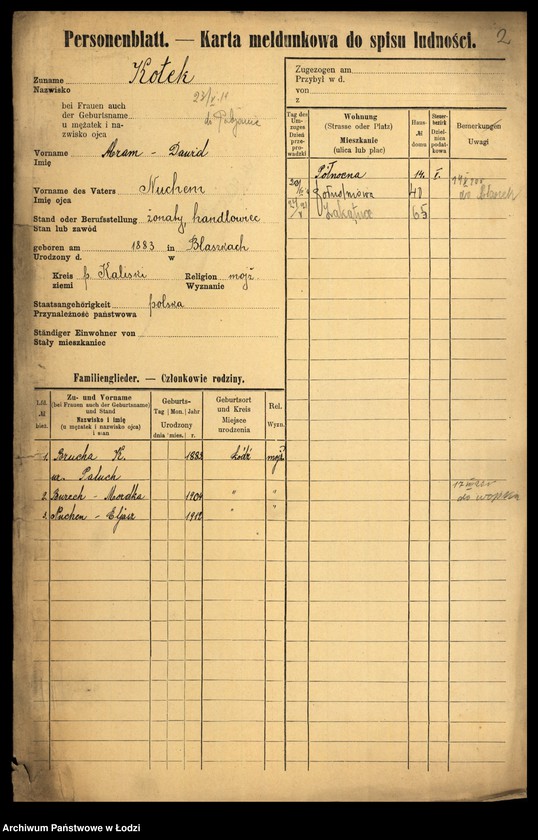 2
Personenblatt. — Karta meldunkowa do spisu ludności.
Zuname Kołek
Nazwisko
bei Frauen auch
der Geburtsname
u mężatek i na-
zwisko ojca
do Pabjanic
Vorname Abram - Dawid
Imię
Vorname des Vaters Nuchem
Imię ojca
Stand oder Berufsstellung żonaty, handlowiec
Stan lub zawód
geboren am 1883 in Blaszkach
Urodzony d. w
Kreis p. Kaliski Religion mojż.
ziemi Wyznanie
Staatsangehörigkeit polska
Przynależność państwowa
Ständiger Einwohner von
Stały mieszkaniec
Zugezogen am
Przybył w d.
von
z
Tag des Um-zuges Dzień prze-prowadzki
Wohnung
(Strasse oder Platz)
Mieszkanie
(ulica lub plac)
Haus-№ domu
Steuer-bezirk Dzielnica podat-kowa
Bemerkungen
Uwagi
Północna 14 I.
40
65
Familienglieder. — Członkowie rodziny.
Lfd. № bież.
Zu- und Vorname
(bei Frauen auch der Geburtsname)
und Stand
Nazwisko i imię
(u mężatek i nazwisko ojca)
i stan
Geburts-
Tag Mon. Jahr
Urodzony
dnia mies. r.
Geburtsort
und Kreis
Miejsce
urodzenia
Rel.
Wyzn.
1. Brucha K. 1883 Łódź mojż
ur. Paluch
2. Burech - Mordka 1904 " "
do wojska
3. Nuchen - Eljasz 1912 " "
Archiwum Państwowe w Łodzi